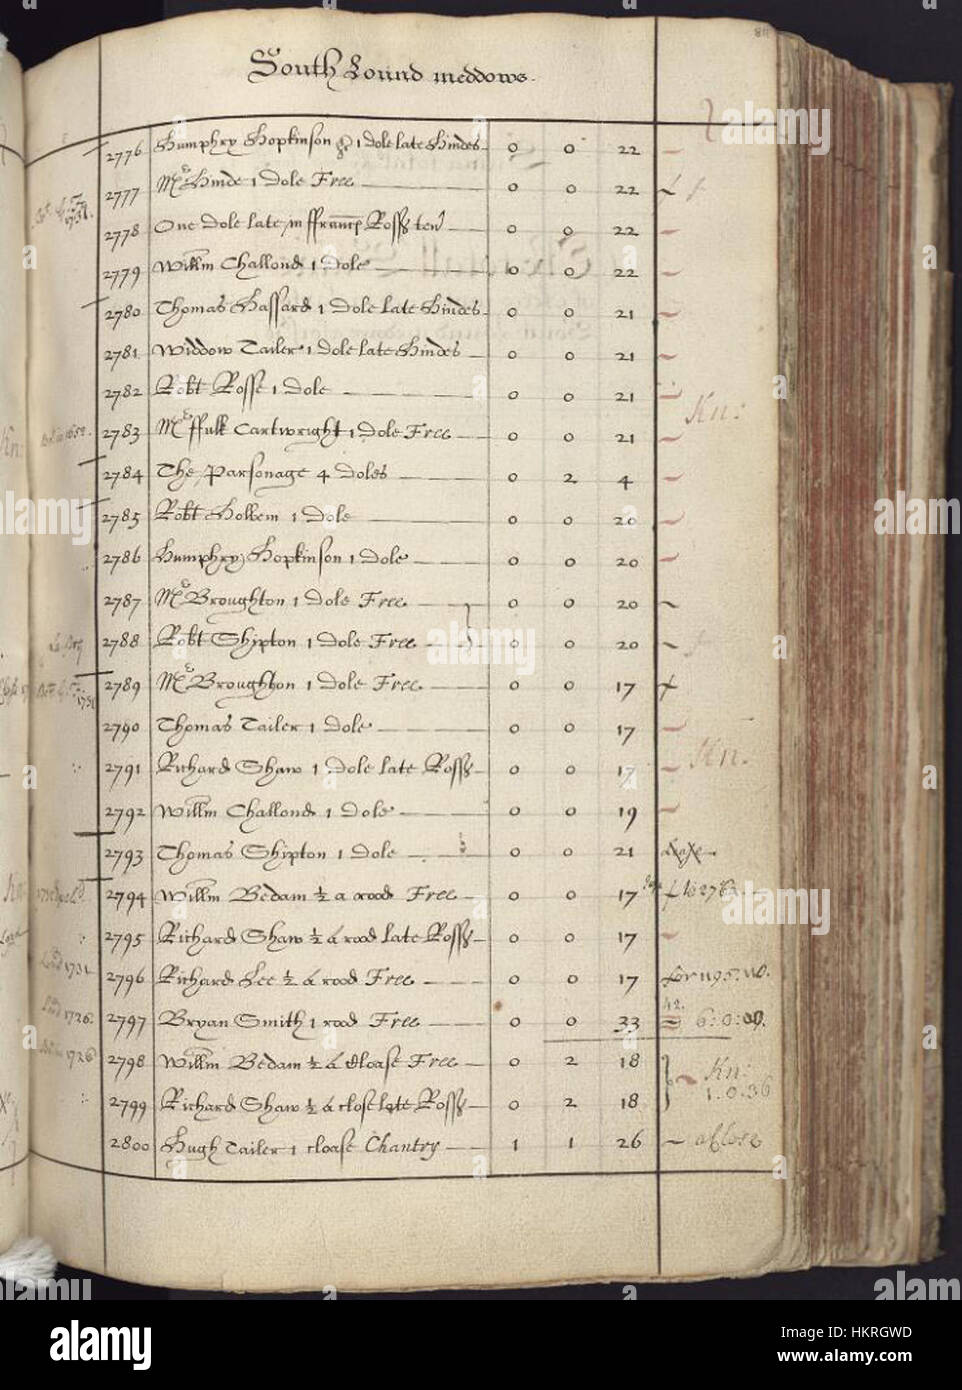 South Lound meddows
2776 Humphry Hopkinson 1 dole late Hindes 0 0 22
2777 Mr Hinde 1 Dole Free 0 0 22
2778 One dole late in ffrancis Rosse ten 0 0 22
2779 Willm Challond 1 dole 0 0 22
2780 Thomas Hassard 1 Dole late Hindes 0 0 21
2781 Widdow Tailer 1 dole late Hindes 0 0 21
2782 Robt Rosse 1 dole 0 0 21
Kn:
2783 Mr ffulk Cartwright 1 Dole Free 0 0 21
2784 The Parsonage 4 doles 0 2 4
2785 Robt Holbem 1 Dole 0 0 20
2786 Humphry Hopkinson 1 dole 0 0 20
2787 Mr Broughton 1 dole Free 0 0 20
2788 Robt Shipton 1 Dole Free 0 0 20
2789 Mr Broughton 1 Dole Free 0 0 17
1731
2790 Thomas Tailer 1 Dole 0 0 17
Kn:
2791 Richard Shaw 1 Dole late Rosse 0 0 17
2792 Willm Challond 1 dole 0 0 19
2793 Thomas Shipton 1 dole 0 0 21
2794 Willm Bedam ½ a rood Free 0 0 17
2795 Richard Shaw ½ a rood late Rosse 0 0 17
1731
2796 Richard Lee ½ a rood Free 0 0 17
1726
2797 Bryan Smith 1 rood Free 0 0 33 6:0:00.
1726
2798 Willm Bedam ½ a Cloase Free 0 2 18
Kn:
1.0.36
2799 Richard Shaw ½ a close late Rosse 0 2 18
2800 Hugh Tailer 1 cloase Chantry 1 1 26 a Close
alamy
alamy
Image ID: HKRGWD
www.alamy.com